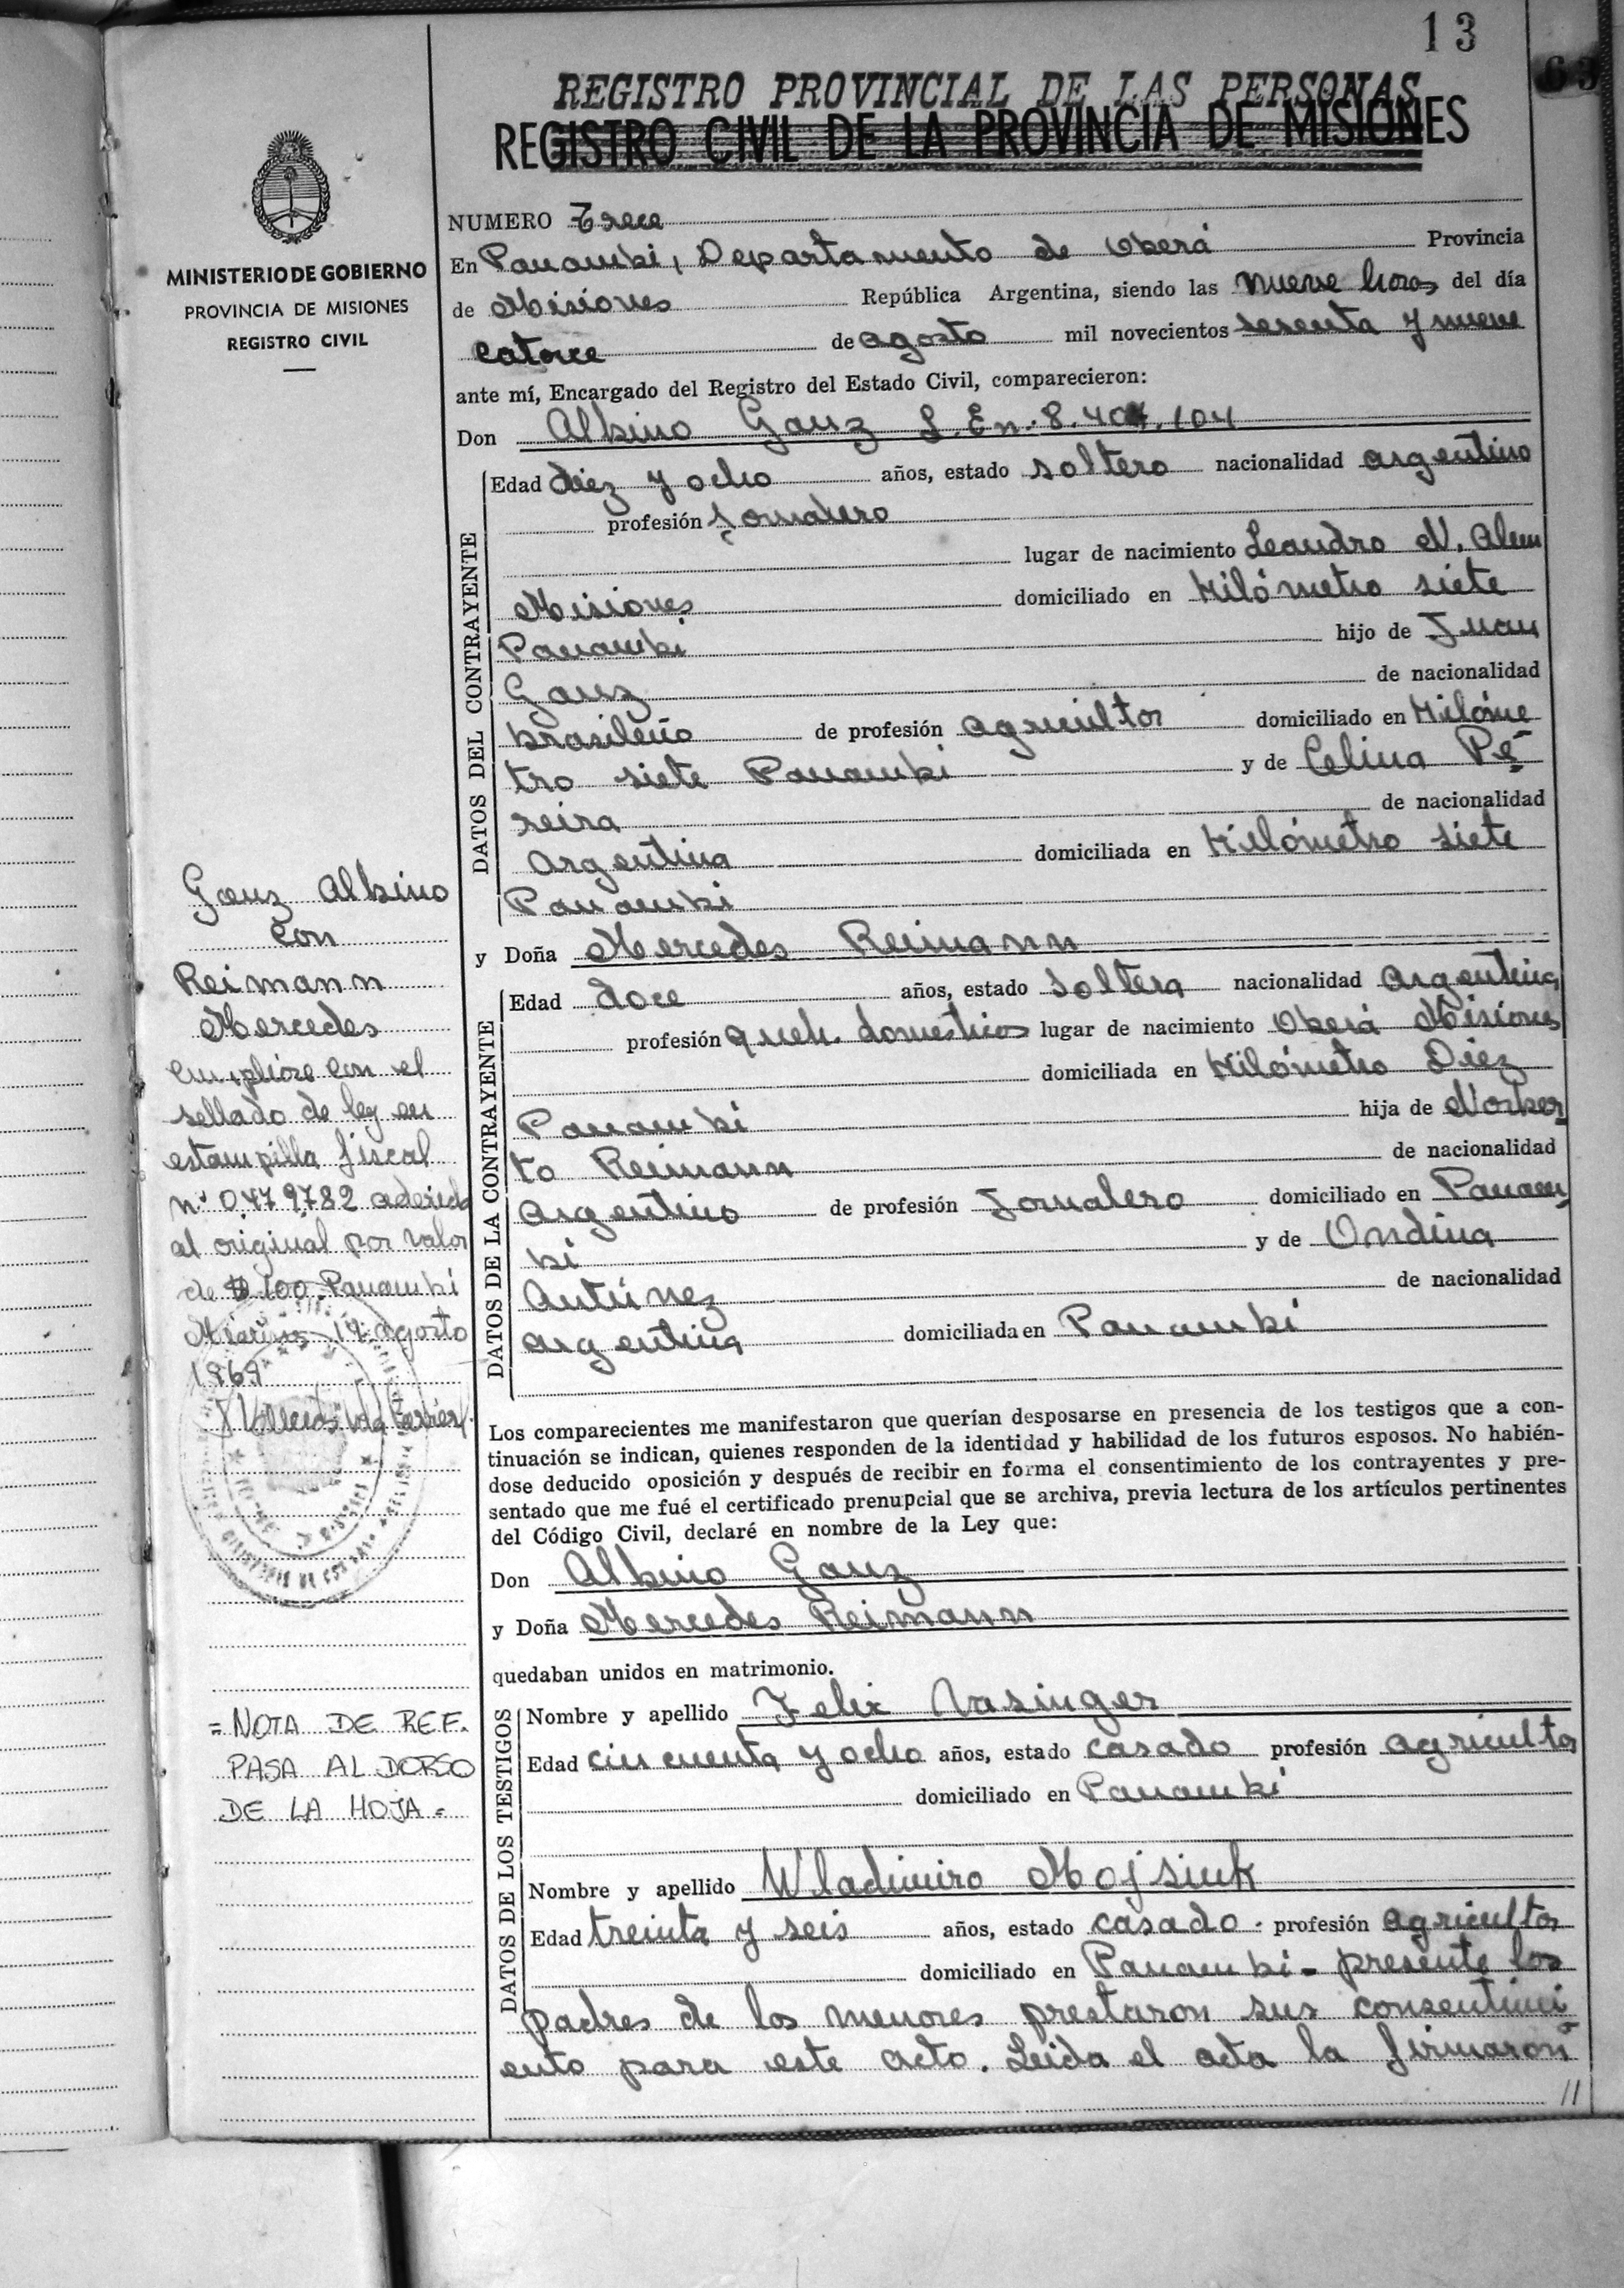 13
63
REGISTRO PROVINCIAL DE LAS PERSONAS
REGISTRO CIVIL DE LA PROVINCIA DE MISIONES
MINISTERIO DE GOBIERNO
PROVINCIA DE MISIONES
REGISTRO CIVIL
NUMERO Trece
En Panambi, Departamento de Oberá Provincia
de Misiones República Argentina, siendo las nueve horas del día
catorce de agosto mil novecientos sesenta y nueve
ante mí, Encargado del Registro del Estado Civil, comparecieron:
Don Albino Gauz L. En. 8.407.104
DATOS DEL CONTRAYENTE
Edad diez y ocho años, estado soltero nacionalidad argentino
profesión Jornalero
lugar de nacimiento Leandro N. Alem
Misiones domiciliado en Kilómetro siete
Panambi hijo de Juan
Gauz de nacionalidad
brasileño de profesión agricultor domiciliado en Kilóme
tro siete Panambi y de Celina Pe
reira de nacionalidad
argentina domiciliada en Kilómetro siete
Panambi
y Doña Mercedes Reimann
DATOS DE LA CONTRAYENTE
Edad doce años, estado soltera nacionalidad argentina
profesión queh. domesticos lugar de nacimiento Oberá Misiones
domiciliada en Kilómetro Diez
Panambi hija de Norber
to Reimann de nacionalidad
argentino de profesión Jornalero domiciliado en Panam
bi y de Ondina
Antúnez de nacionalidad
argentina domiciliada en Panambi
Los comparecientes me manifestaron que querían desposarse en presencia de los testigos que a con-
tinuación se indican, quienes responden de la identidad y habilidad de los futuros esposos. No habién-
dose deducido oposición y después de recibir en forma el consentimiento de los contrayentes y pre-
sentado que me fué el certificado prenupcial que se archiva, previa lectura de los artículos pertinentes
del Código Civil, declaré en nombre de la Ley que:
Don Albino Gauz
y Doña Mercedes Reimann
quedaban unidos en matrimonio.
DATOS DE LOS TESTIGOS
Nombre y apellido Felix Nasinger
Edad cincuenta y ocho años, estado casado profesión agricultor
domiciliado en Panambi
Nombre y apellido Wladimiro Mojsiuk
Edad treinta y seis años, estado casado - profesión agricultor
domiciliado en Panambi - presente los
padres de los menores prestaron sus consentimi
ento para este acto. Leida el acta la firmaron
//
Gauz Albino
con
Reimann
Mercedes
Cumpliose con el
sellado de ley en
estampilla fiscal
nº 0479782 aderida
al original por valor
de $ 100. Panambi
Misiones 14 agosto
1969
= NOTA DE REF.
PASA AL DORSO
DE LA HOJA =